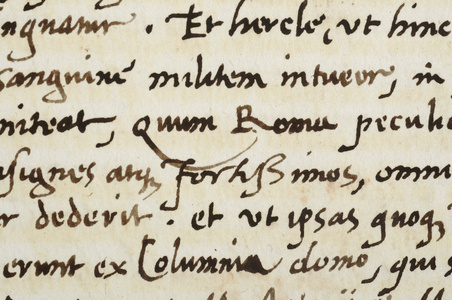 nguatur. Et hercle, ut hinc
sanguine militem intueor, in
niteat, Quum Roma peculia
signes atq fortissimos, omni
r dederit. et ut ipsas quoq
erunt ex Columnia domo, qui s